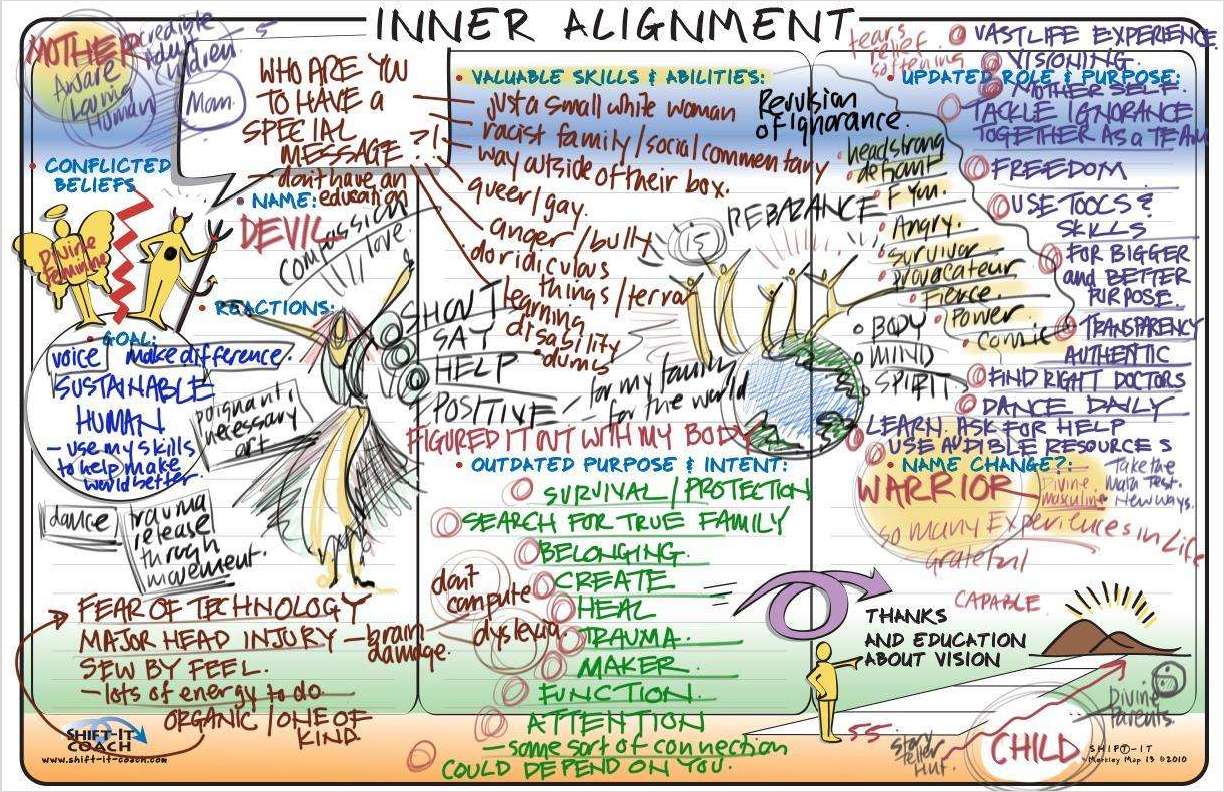 INNER ALIGNMENT
MOTHER
Aware
Loving
Human
credible
Adult
Children.
5
Mom.
WHO ARE YOU
TO HAVE A
SPECIAL
MESSAGE ?!
- don't have an
education
• CONFLICTED
BELIEFS
Divine
Feminine
• NAME:
DEVIL
compassion
love.
• REACTIONS:
• GOAL:
voice
make difference.
SUSTAINABLE
HUMAN
- use my skills
to help make
world better.
poignant,
necessary
art
dance
trauma
release
through
movement.
FEAR OF TECHNOLOGY
MAJOR HEAD INJURY - brain
damage.
SEW BY FEEL.
- lots of energy to do.
ORGANIC / ONE OF
KIND
SHIFT-IT
COACH
www.shift-it-coach.com
• VALUABLE SKILLS & ABILITIES:
just a small white woman
racist family/social commentary
way outside of their box.
queer/gay.
anger/bully
do ridiculous
things/terror
learning
disability
• dumb
Revulsion
of ignorance.
REBALANCE
15
SHOUT
SAY
HELP
POSITIVE
- for my family
- for the world
FIGURED IT OUT WITH MY BODY
• OUTDATED PURPOSE & INTENT:
SURVIVAL/PROTECTION
SEARCH FOR TRUE FAMILY
BELONGING.
CREATE
HEAL
TRAUMA.
MAKER.
FUNCTION.
ATTENTION
- some sort of connection
COULD DEPEND ON YOU.
don't
compute
dyslexia.
tears
relief
softening
• UPDATED ROLE & PURPOSE:
VAST LIFE EXPERIENCE.
VISIONING.
MOTHER SELF.
TACKLE IGNORANCE
TOGETHER AS A TEAM
FREEDOM
USE TOOLS &
SKILLS
FOR BIGGER
and BETTER
PURPOSE.
TRANSPARENCY
AUTHENTIC
FIND RIGHT DOCTORS
DANCE DAILY
LEARN. ASK FOR HELP
USE AUDIBLE RESOURCES
• headstrong
• defiant
• F You.
• Angry.
• survivor
• Provocateur
• Fierce.
• Power.
• BODY
• MIND
• SPIRIT.
• NAME CHANGE?:
WARRIOR
Divine
masculine
Take the
Math Test.
New ways.
so many Experiences in Life
Grateful
CAPABLE.
THANKS
AND EDUCATION
ABOUT VISION
55
Story
Teller
Hut.
CHILD
Divine
Parents.
SHIFT-IT
Markley Map 13 ©2010